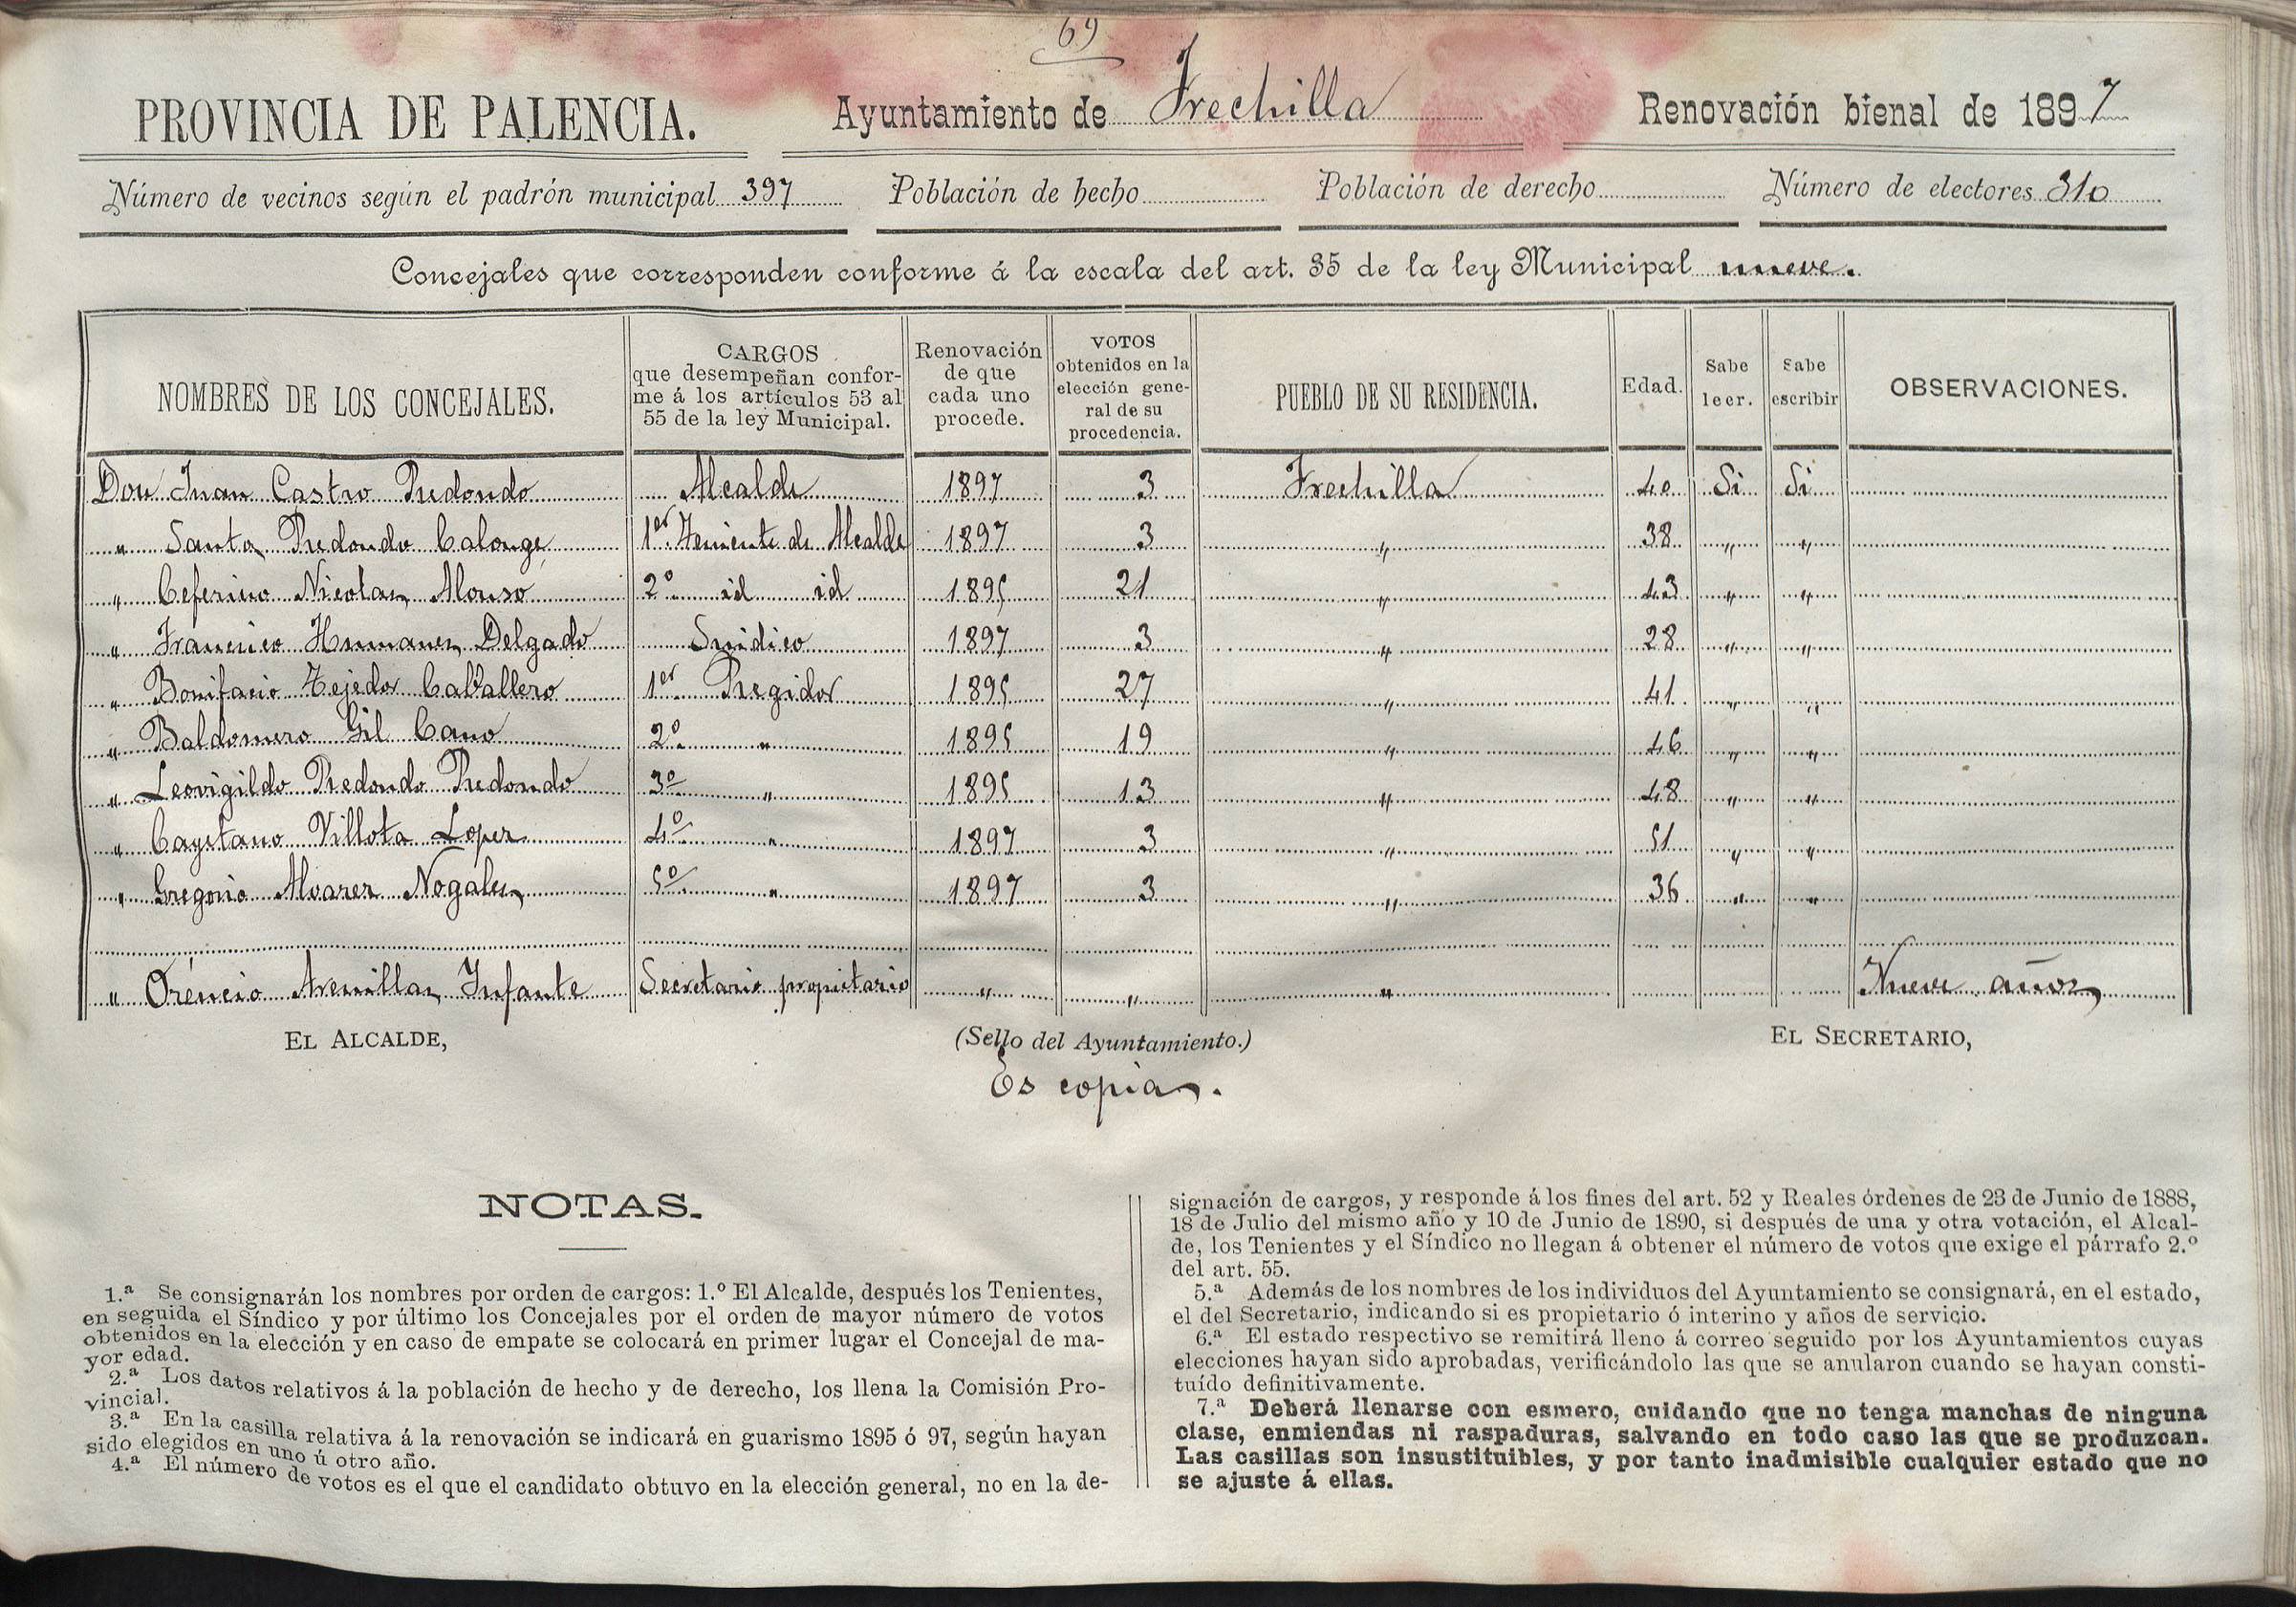 69
PROVINCIA DE PALENCIA. Ayuntamiento de Frechilla Renovación bienal de 1897
Número de vecinos según el padrón municipal 397 Población de hecho Población de derecho Número de electores 310
Concejales que corresponden conforme á la escala del art. 35 de la ley Municipal nueve.
NOMBRES DE LOS CONCEJALES. CARGOS que desempeñan conforme á los artículos 53 al 55 de la ley Municipal. Renovación de que cada uno procede. VOTOS obtenidos en la elección general de su procedencia. PUEBLO DE SU RESIDENCIA. Edad. Sabe leer. Sabe escribir OBSERVACIONES.
Don Juan Castro Redondo Alcalde 1897 3 Frechilla 40 Si Si
" Santos Redondo Calonge 1er Teniente de Alcalde 1897 3 " 38 " "
" Ceferino Nicolas Alonso 2º id id 1895 21 " 43 " "
" Francisco Delgado Sindico 1897 3 " 28 " "
" Bonifacio Tejedor Caballero 1er Regidor 1895 27 " 41 " "
" Baldomero Gil Cano 2º " 1895 19 " 46 " "
" Leovigildo Redondo Redondo 3º " 1895 13 " 48 " "
" Cayetano Villota Lopez 4º " 1897 3 " 51 " "
" Gregorio Alvarez Nogales 5º " 1897 3 " 36 " "
" Orencio Arenillas Infante Secretario propietario " " " Nueve años
EL ALCALDE, (Sello del Ayuntamiento.) EL SECRETARIO,
Es copia.
NOTAS.
1.ª Se consignarán los nombres por orden de cargos: 1.º El Alcalde, después los Tenientes,
en seguida el Síndico y por último los Concejales por el orden de mayor número de votos
obtenidos en la elección y en caso de empate se colocará en primer lugar el Concejal de ma-
yor edad.
2.ª Los datos relativos á la población de hecho y de derecho, los llena la Comisión Pro-
vincial.
3.ª En la casilla relativa á la renovación se indicará en guarismo 1895 ó 97, según hayan
sido elegidos en uno ú otro año.
4.ª El número de votos es el que el candidato obtuvo en la elección general, no en la de-
signación de cargos, y responde á los fines del art. 52 y Reales órdenes de 23 de Junio de 1888,
18 de Julio del mismo año y 10 de Junio de 1890, si después de una y otra votación, el Alcal-
de, los Tenientes y el Síndico no llegan á obtener el número de votos que exige el párrafo 2.º
del art. 55.
5.ª Además de los nombres de los individuos del Ayuntamiento se consignará, en el estado,
el del Secretario, indicando si es propietario ó interino y años de servicio.
6.ª El estado respectivo se remitirá lleno á correo seguido por los Ayuntamientos cuyas
elecciones hayan sido aprobadas, verificándolo las que se anularon cuando se hayan consti-
tuído definitivamente.
7.ª Deberá llenarse con esmero, cuidando que no tenga manchas de ninguna
clase, enmiendas ni raspaduras, salvando en todo caso las que se produzcan.
Las casillas son insustituibles, y por tanto inadmisible cualquier estado que no
se ajuste á ellas.